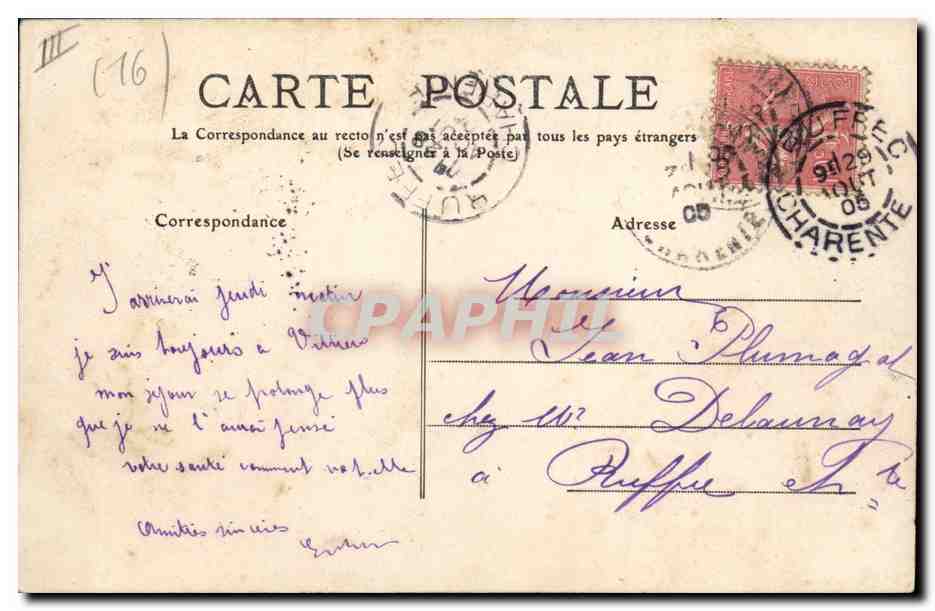 III
(16)
CARTE POSTALE
La Correspondance au recto n'est pas acceptée par tous les pays étrangers
(Se renseigner à la Poste)
Correspondance
Adresse
RUFFEC
9 29
AOUT
05
CHARENTE
J'arriverai jeudi matin
je suis toujours à Villiers
mon séjour se prolonge plus
que je ne l'aurai pensé
votre santé comment vat elle
Amitiés sincères
Monsieur
Jean Plumag
chez Mr Delaunay
à Ruffec Ch te
CPAPHIL